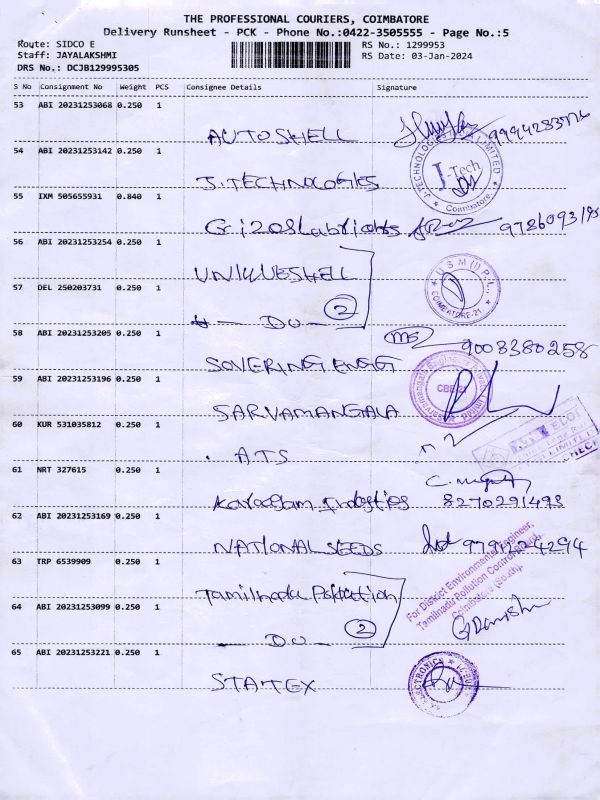 THE PROFESSIONAL COURIERS, COIMBATORE
Delivery Runsheet - PCK - Phone No.:0422-3505555 - Page No.:5
Route: SIDCO E
RS No.: 1299953
Staff: JAYALAKSHMI
RS Date: 03-Jan-2024
DRS No.: DCJB129995305
S No Consignment No Weight PCS Consignee Details Signature
53 ABI 20231253068 0.250 1
AUTOSHELL
54 ABI 20231253142 0.250 1
J.TECHNOLOGIES
J-TECHNOLOGIES LIMITED
J-Tech
Coimbatore.
55 IXM 505655931 0.840 1
56 ABI 20231253254 0.250 1
UNIQUESHELL
U S M (I) P. L.,
COIMBATORE-21
57 DEL 250203731 0.250 1
- DO - 2
58 ABI 20231253205 0.250 1
SOVERING ENGG
9003380258
59 ABI 20231253196 0.250 1
SARVAMANGALA
CBE-21
60 KUR 531035812 0.250 1
ATS
61 NRT 327615 0.250 1
8270291493
62 ABI 20231253169 0.250 1
NATIONAL SEEDS
63 TRP 6539909 0.250 1
For District Environmental Engineer,
Tamilnadu Pollution Control Board,
Coimbatore (South).
64 ABI 20231253099 0.250 1
- DO - 2
65 ABI 20231253221 0.250 1
STATEX
ELECTRONICS